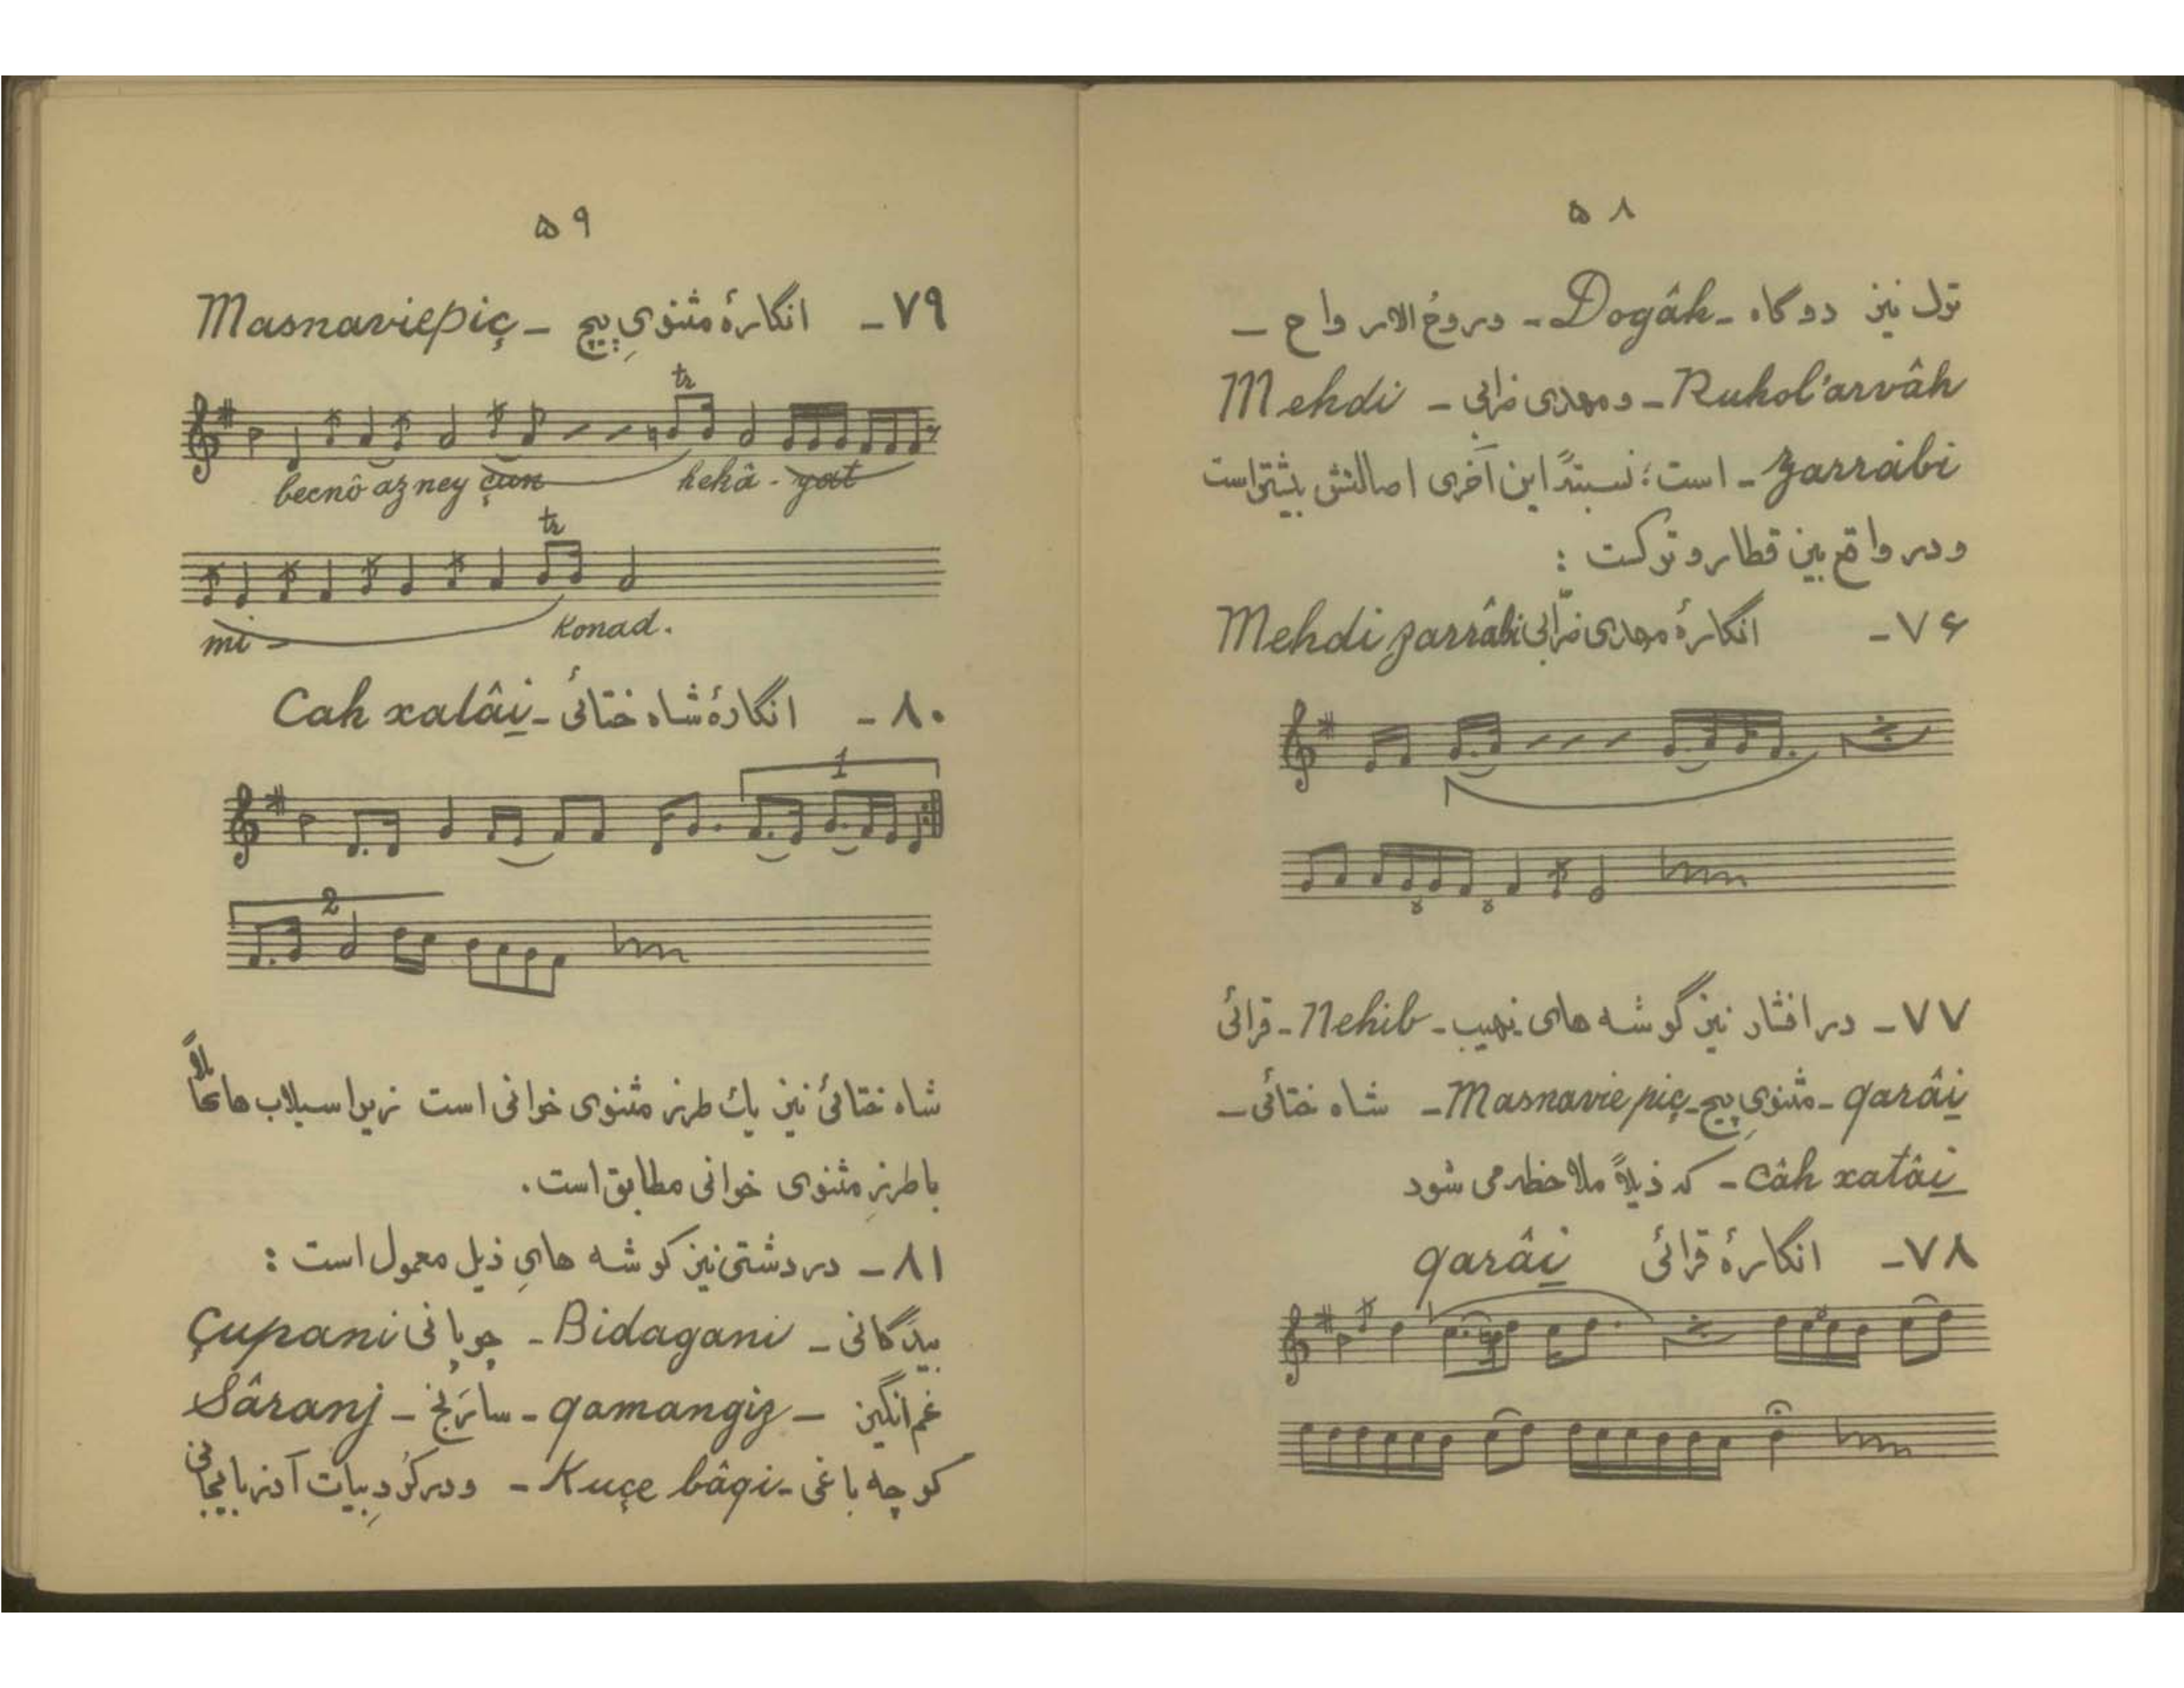 ۵۸
تول نیز دوگاه - Dogâh - و روحُ الارواح -
Ruhol'arvâh - و مهدی ضرابی - Mehdi
zarrâbi - است؛ نسبتهً این آخری اصالتش بیشتر است
و در واقع بین قطار و ترکست :
۷۶- انگارهٔ مهدی ضرّابی Mehdi zarrâbi
۷۷- در افشار نیز گوشه های نهیب - Nehib - قرائی
qarâi - مثنویِ پیچ - Masnavie piç - شاه ختائی -
Câh xatâi - که ذیلاً ملاحظه می شود
۷۸- انگارهٔ قرائی qarâi
۵۹
۷۹- انگارهٔ مثنویِ پیچ - Masnaviepiç
tr
becnô az ney çun hekâ - yat
tr
mi - konad.
۸۰- انگارهٔ شاه ختائی - Cah xatâi
1
2
شاه ختائی نیز یك طرز مثنوی خوانی است زیرا سیلاب ها کاملاً
با طرزِ مثنوی خوانی مطابق است.
۸۱- در دشتی نیز گوشه هایِ ذیل معمول است :
بیدگانی - Bidagani - چوپانی Çupani
غم انگیز - qamangiz - سارَنج - Sâranj
کوچه باغی - Kuçe bâqi - و در کُردِ بیات آذربایجانی